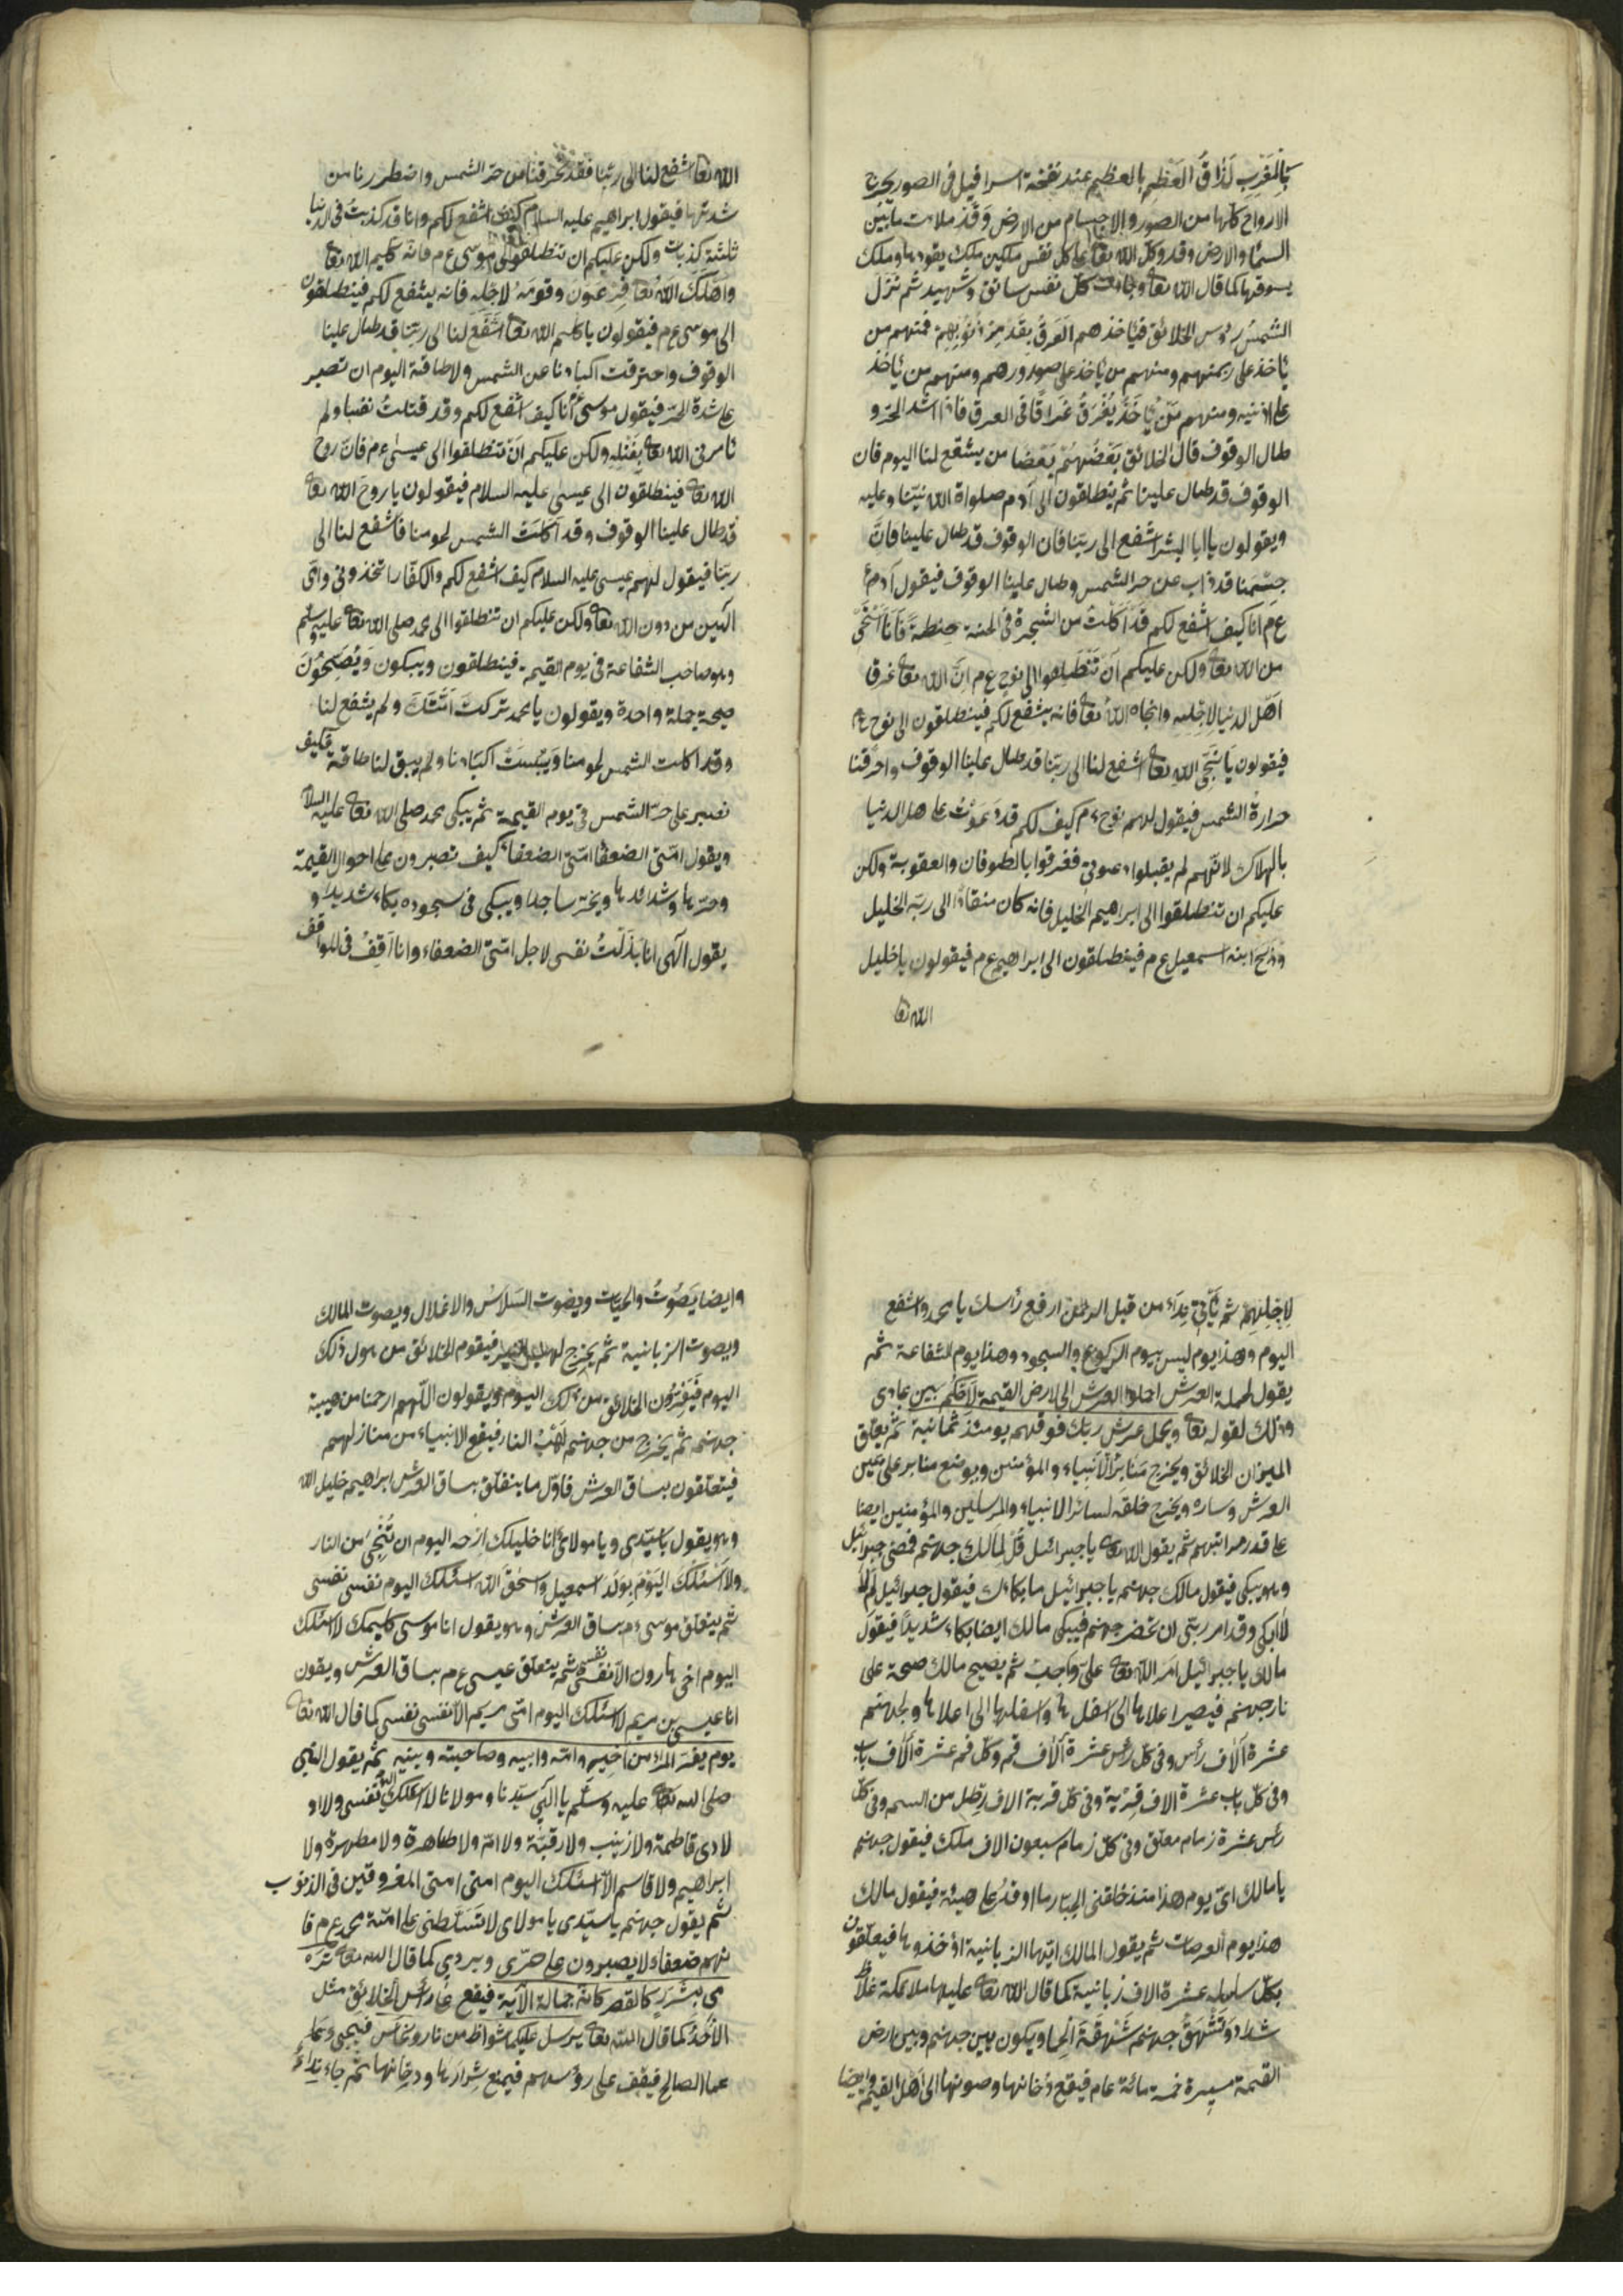 بالمغرب لذاق العظم بالعظم عند نفخة اسرافيل فى الصور يخرج
الارواح كلها من الصور والاجسام من الارض وقد ملائت مابين
السما والارض وقد وكل الله تعا على كل نفس ملكين ملك يقودها وملك
يسوقها كما قال الله تعا وجاءت كل نفس سائق وشهيد ثم نزل
الشمس رؤس الخلائق فيأخذهم العرق بقدر ذنوبهم فمنهم من
يأخذ على ومنهم من يأخذ على صدورهم ومنهم من يأخذ
على اذنيه ومنهم من يأخذ يغرق غراقا فى العرق فاذا اشد الحر و
طال الوقوف قال الخلائق بعضهم بعضا من يشفع لنا اليوم فان
الوقوف قد طال علينا ثم ينطلقون الى آدم صلواة الله نبينا وعليه
ويقولون ياابا البشر اشفع الى ربنا فان الوقوف قد طال علينا فان
جسمنا قد ذاب عن حر الشمس وطال علينا الوقوف فيقول آدم
ع م انا كيف اشفع لكم قد اكلت من الشجرة فى الجنة حنطة فانا استحى
من الله تعا ولكن عليكم ان تنطلقوا الى نوح ع م ان الله تعا غرقا
اهل الدنيا لاجله وانجاه الله تعا فانه يشفع لكم فينطلقون الى نوح ع م
فيقولون يا نجى الله تعا اشفع لنا الى ربنا قد طال علينا الوقوف واحرقنا
حرارة الشمس فيقول لهم نوح ع م كيف لكم قد دعوت على هل الدنيا
بالهلاك لانهم لم يقبلوا دعوتى فغرقوا بالطوفان والعقوبة ولكن
عليكم ان تنطلقوا الى ابراهيم الخليل فانه كان منقادا الى ربه الخليل
وذبح ابنه اسمعيل ع م فينطلقون الى ابراهيم ع م فيقولون يا خليل
الله تعا
الله تعا اشفع لنا الى ربنا فقد حرقنا من حر الشمس واضطررنا من
شدتها فيقول ابراهيم عليه السلام كيف اشفع لكم وانا قد كذبت فى الدنيا
ثلثة كذبات ولكن عليكم ان تنطلقوا الى موسى ع م فانه كليم الله تعا
واهلك الله تعا فرعون وقومه لاجله فانه يشفع لكم فينطلقون
الى موسى ع م فيقولون يا كليم الله تعا اشفع لنا الى ربنا قد طال علينا
الوقوف واحترقت اكبادنا عن الشمس ولا طاقة اليوم ان تصبر
على شدة الحر فيقول موسى انا كيف اشفع لكم وقد قتلت نفسا ولم
تأمرنى الله تعا بقتله ولكن عليكم ان تنطلقوا الى عيسى ع م فان روح
الله تعا فينطلقون الى عيسى عليه السلام فيقولون يا روح الله تعا
قد طال علينا الوقوف وقد اكلت الشمس لحومنا فاشفع لنا الى
ربنا فيقول لهم عيسى عليه السلام كيف اشفع لكم والكفار اتخذونى وامى
الهين من دون الله تعا ولكن عليكم ان تنطلقوا الى محمد صلى الله تعا عليه وسلم
وهو صاحب الشفاعة فى يوم القيمة فينطلقون ويبكون ويصيحون
صيحة جملة واحدة ويقولون يا محمد تركت امتك ولم يشفع لنا
وقد اكلت الشمس لحومنا ويبست اكبادنا ولم يبق لنا طاقة فكيف
نصبر على حر الشمس فى يوم القيمة ثم يبكى محمد صلى الله تعا عليه السلام
ويقول امتى الضعفا امتى الضعفا كيف تصبرون على احوال القيمة
وحرها وشدائدها ويخر ساجدا ويبكى فى سجوده بكاء شديدا و
يقول الهى انا بذلت نفسى لاجل امتى الضعفاء وانا اقف فى المواقف
لاجلهم ثم يأتى نداء من قبل الرحمن ارفع رأسك يا محمد واشفع
اليوم وهذا يوم ليس بيوم الركوع والسجود وهذا يوم الشفاعة ثم
يقول لحملة العرش احملوا العرش الى لارض القيمة لاحكم بين عبادى
وذلك لقوله تعا ويحمل عرش ربك فوقهم يومئذ ثمانية ثم يعلق
الميزان الخلائق ويخرج منابر الانبياء والمؤمنين ويوضع منابر على يمين
العرش وساره ويخرج خلفه لسائر الانبياء والمرسلين والمؤمنين ايضا
على قدر مراتبهم ثم يقول الله تعا يا جبرائيل قل لمالك جهنم فمضى جبرائيل
وهو يبكى فيقول مالك جهنم يا جبرائيل ما بكائك فيقول جبرائيل لم لا
لاابكى وقد امر ربى ان تحضر جهنم فيبكى مالك ايضا بكاء شديدا فيقول
مالك يا جبرائيل امر الله تعا على واجب ثم يصيح مالك صيحة على
نار جهنم فيصير اعلاها الى اسفلها واسفلها الى اعلاها ولجهنم
عشرة آلاف رأس وفى كل رأس عشرة آلاف فم وكل فم عشرة آلاف باب
وفى كل باب عشرة الاف قرية وفى كل قرية الاف رطل من السم وفى كل
رأس عشرة زمام معلق وفى كل زمام سبعون الاف ملك فيقول جهنم
يا مالك اى يوم هذا منذ خلقنى الجبار ما اوقد على هيئة فيقول مالك
هذا يوم العرصات ثم يقول المالك ايتها الزبانية خذوها فيعلقون
بكل سلسله عشرة الاف زبانية كما قال الله تعا عليها ملائكة غلاظ
شداد وتشهق جهنم شهقة ويكون بين جهنم وبين ارض
القيمة مسيرة خمسة مائة عام فيقع دخانها وصوتها الى اهل القيمة وايضا
وايضا يصوت والحيات ويصوت السلاس والاغلال ويصوت المالك
ويصوت الزبانية ثم يخرج فيقوم الخلائق من هول ذلك
اليوم الخلائق من ذلك اليوم ويقولون اللهم ارحمنا من هيبة
جهنم ثم يخرج من جهنم لهب النار فيقع الانبياء من منازلهم
فيتعلقون بساق العرش فاول ما يتعلق بساق العرش ابراهيم خليل الله
وهو يقول يا سيدى ويا مولائى انا خليلك ارحم اليوم ان تنجى من النار
ولا اسئلك اليوم بولد اسمعيل واسحق الله اسئلك اليوم نفسى نفسى
ثم يتعلق موسى ع م بساق العرش وهو يقول انا موسى كليمك لا اسئلك
اليوم اخى هارون الا نفسى نفسى ثم يتعلق عيسى ع م بساق العرش ويقول
انا عيسى بن مريم لا اسئلك اليوم امى مريم الا نفسى نفسى كما قال الله تعا
يوم يفر المرء من اخيه وامه وابيه وصاحبته وبنيه ثم يقول النبى
صلى الله تعا عليه وسلم يا الهى سيدنا ومولانا لا اسئلك اليوم نفسى ولا او
لادى فاطمة ولا زينب ولا رقية ولا ام ولا طاهرة ولا مطهرة ولا
ابراهيم ولا قاسم الا اسئلك اليوم امتى امتى المغروقين فى الذنوب
ثم يقول جهنم يا سيدى يا مولاى لا تسلطنى على امة محمد ع م فا
نهم ضعفاء لا يصبرون على حرى وبردى كما قال الله تعا تر
مى بشرر كالقصر كانه جمالة الآية فيقع على رأس الخلائق مثل
كما قال الله تعا يرسل عليكما شواظ من نار ونحاس فيجئ وعا
عما الصالح فيقف على رؤسهم فيمنع شرارها ودخانها ثم جاء نداء